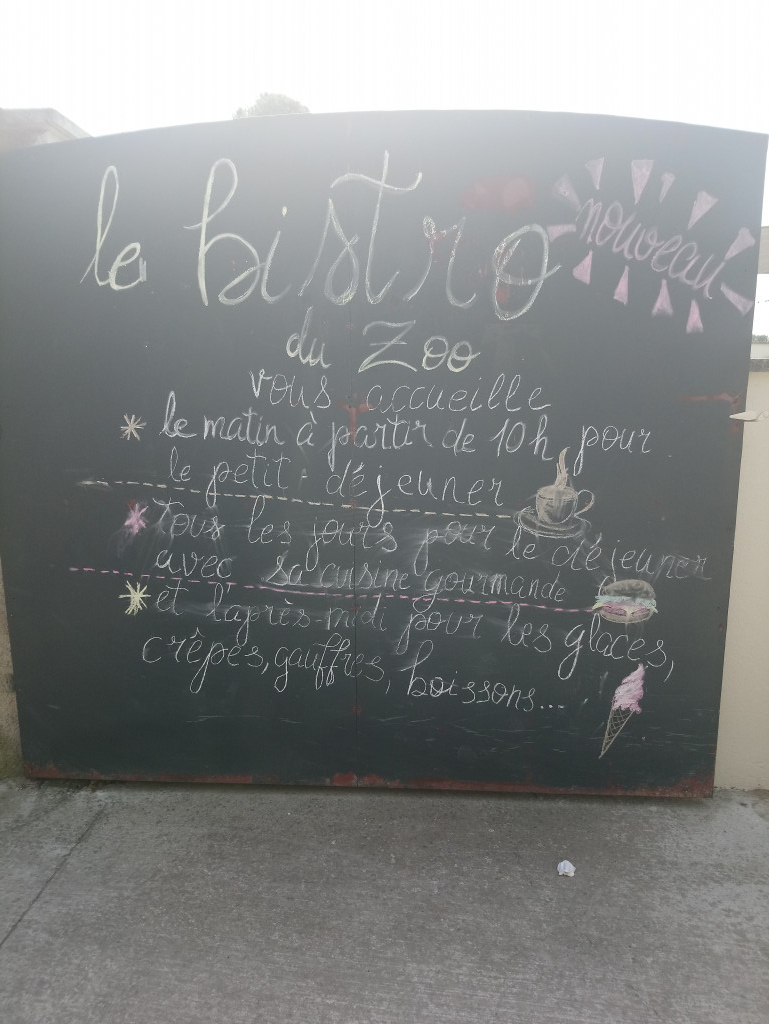 le bistro
nouveau
du Zoo
vous accueille
le matin à partir de 10h pour
le petit-déjeuner
tous les jours pour le déjeuner
avec sa cuisine gourmande
et l'après-midi pour les glaces,
crêpes, gauffres, boissons...